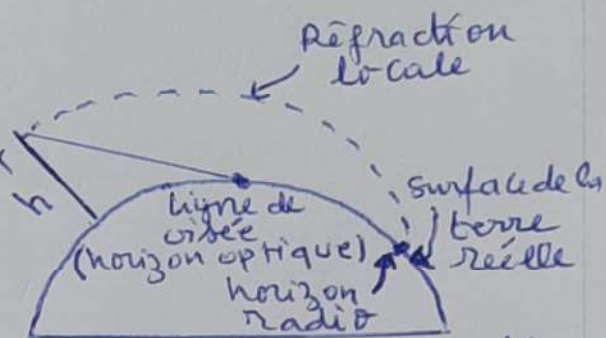 Réfraction
locale
h
ligne de
visée
(horizon optique)
horizon
radio
surface de la
terre
réelle